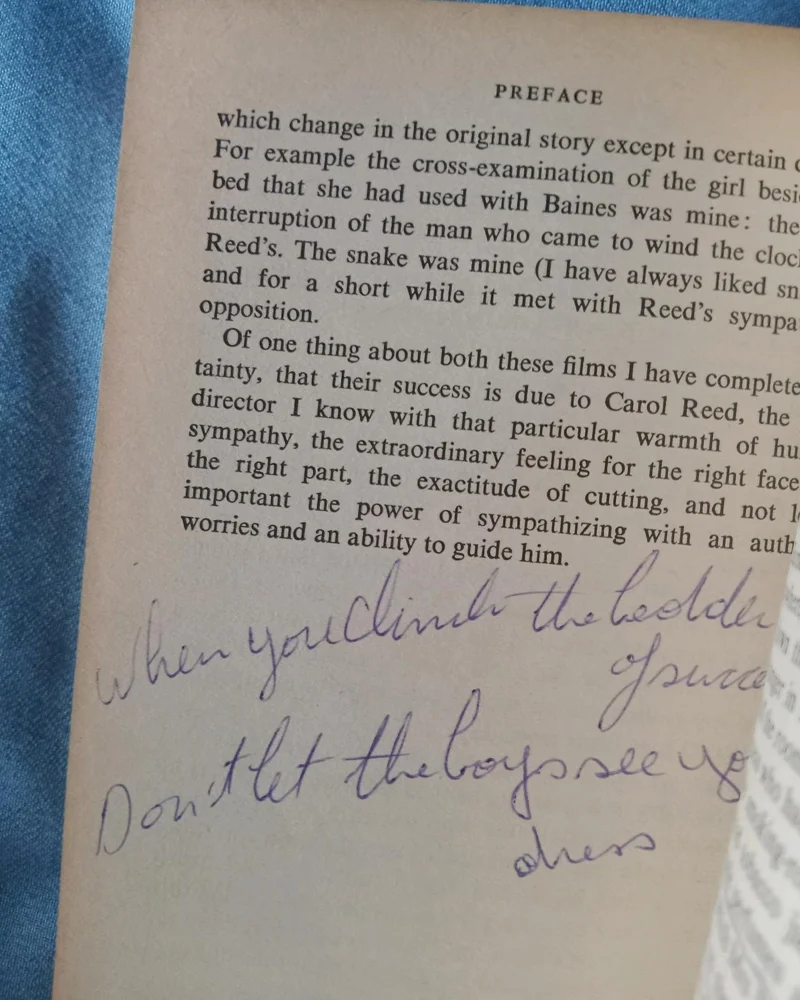 PREFACE
which change in the original story except in certain
For example the cross-examination of the girl besi
bed that she had used with Baines was mine: the
interruption of the man who came to wind the cloc
Reed's. The snake was mine (I have always liked sn
and for a short while it met with Reed's sympa
opposition.
Of one thing about both these films I have complete
tainty, that their success is due to Carol Reed, the
director I know with that particular warmth of hu
sympathy, the extraordinary feeling for the right face
the right part, the exactitude of cutting, and not l
important the power of sympathizing with an auth
worries and an ability to guide him.
When you climb the ladder
of succe
Don't let the boys see yo
dress